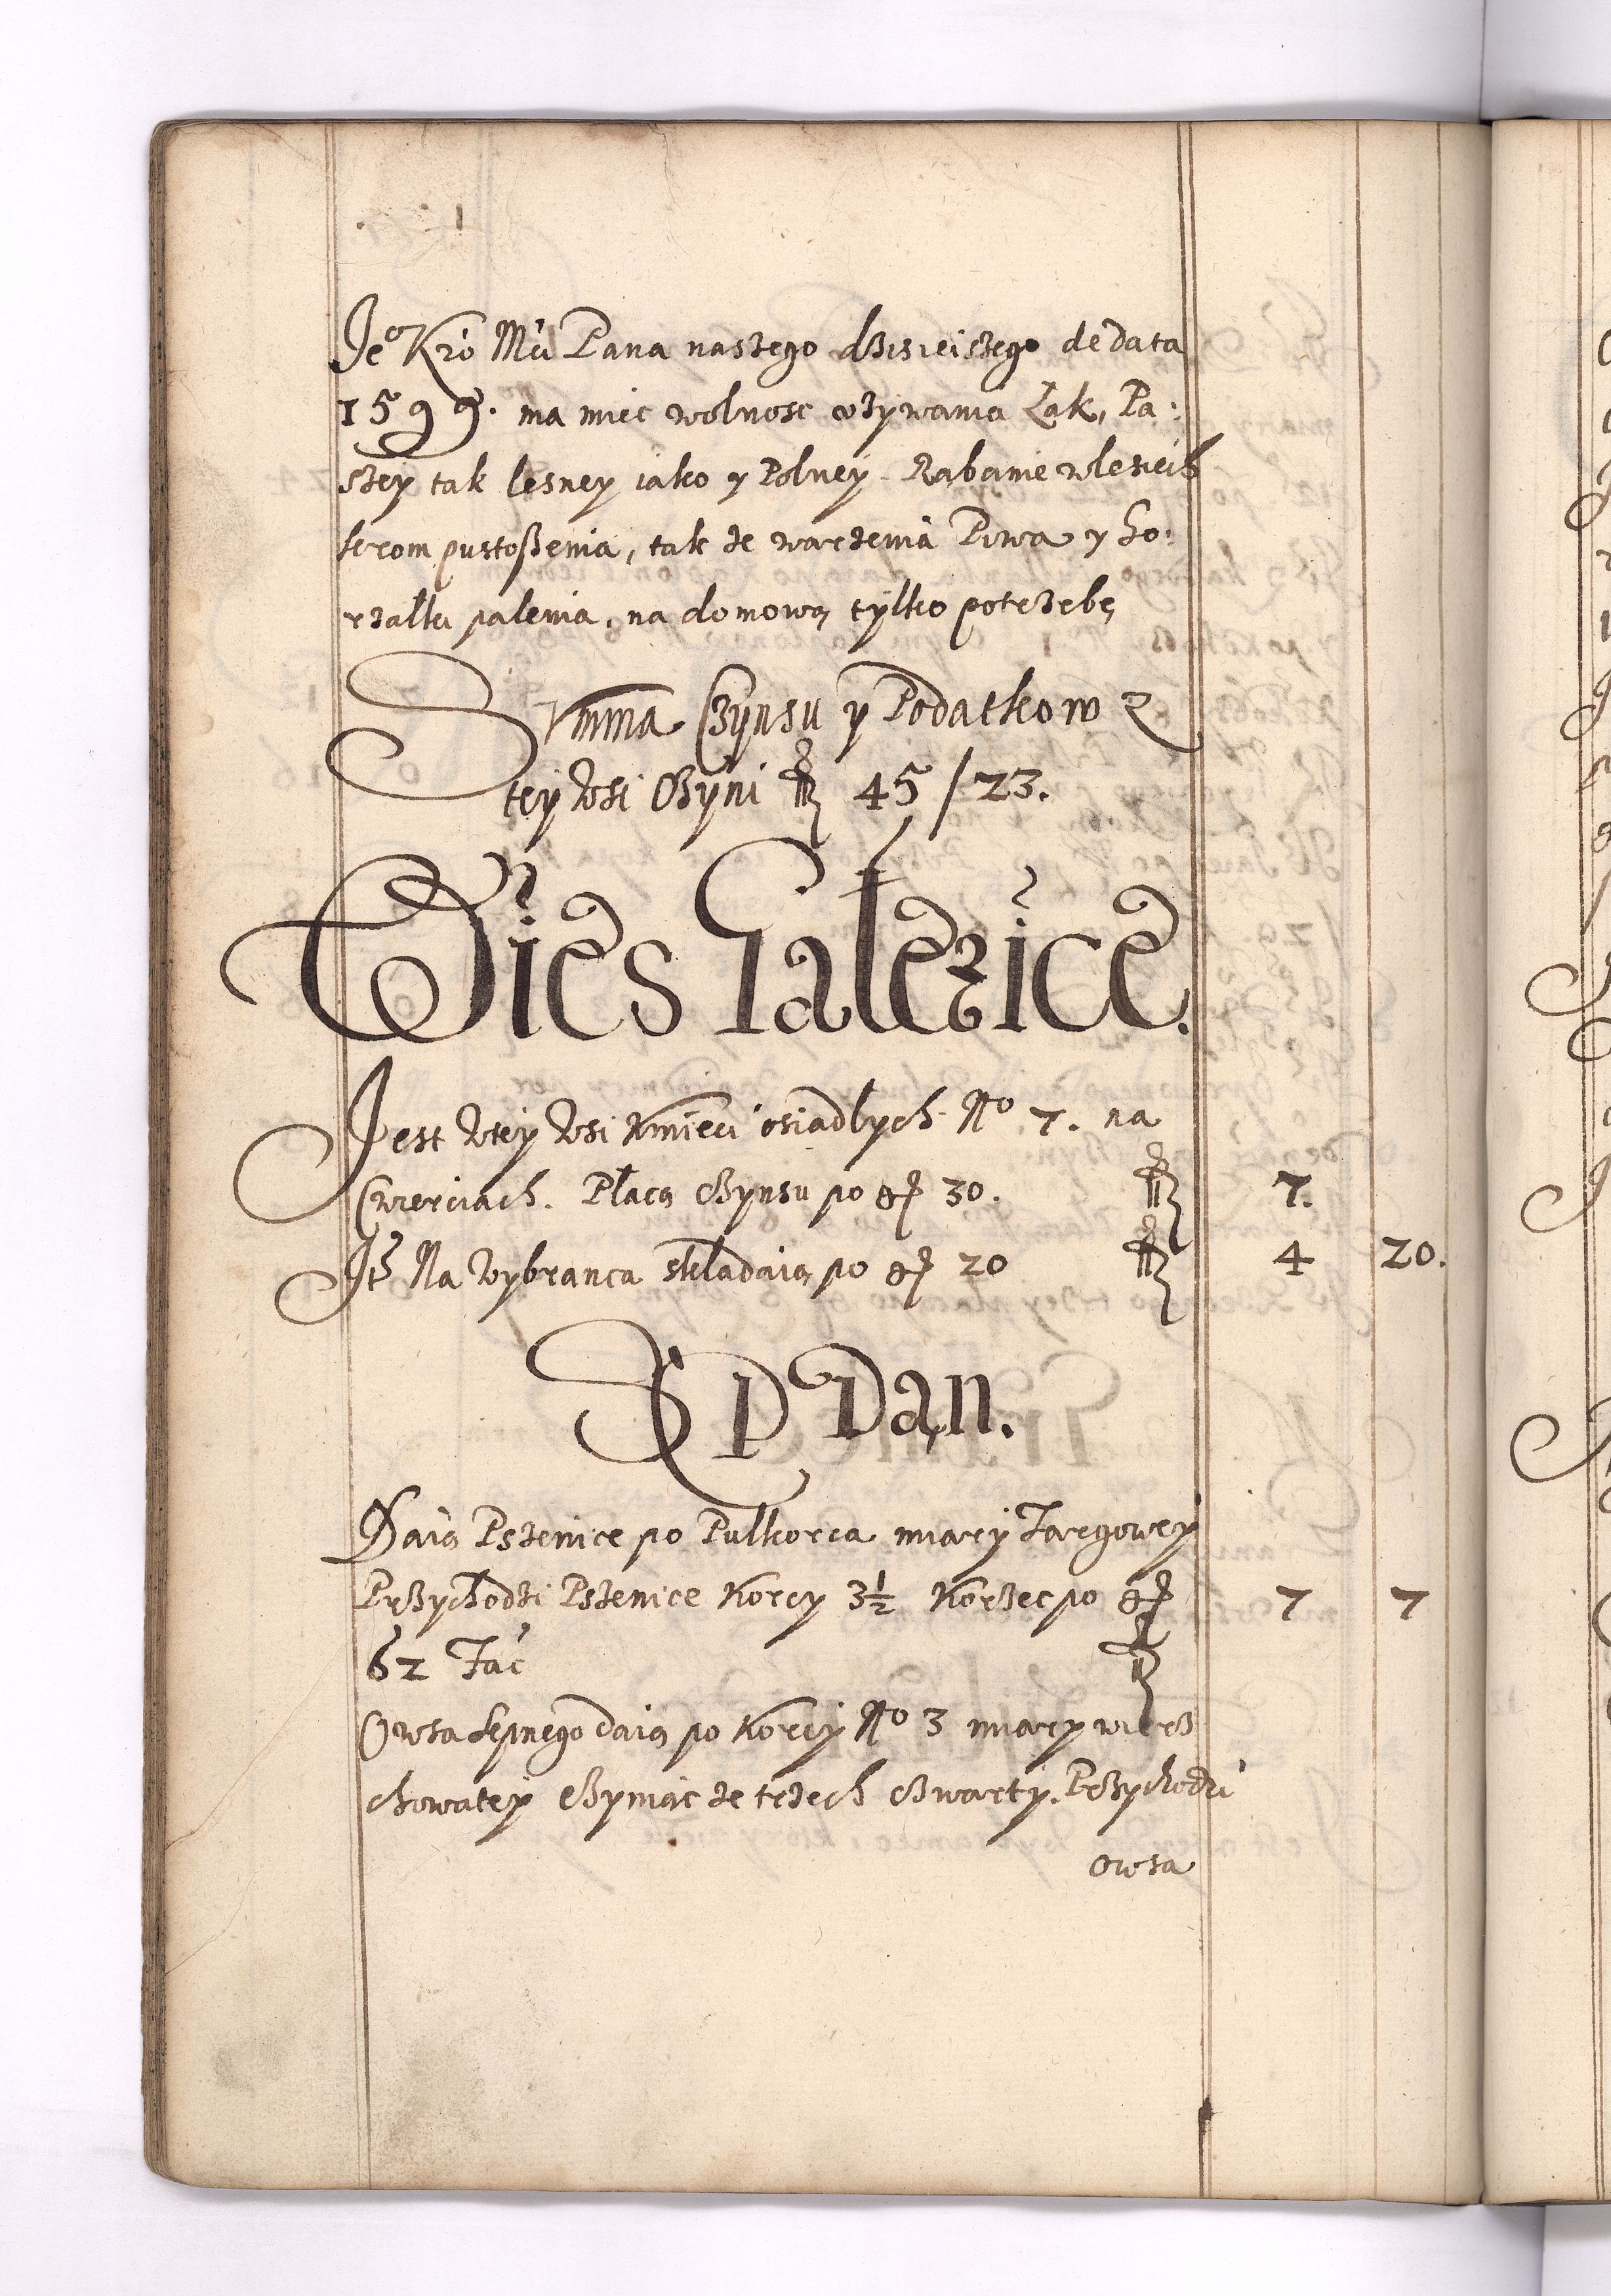 Je⁰ Kró Mći Pana naszego dzisieiszego de data
1599. ma miec wolnosc vżywania Łąk, Pa:
szey tak lesney iako y Polney. Rąbanie w lesie
krom pustoszenia, tak że warzenia Piwa y Go:
rzałki palenia, na domową tylko potrzebę
Summa Czynsu y Podatkow z
tey Wsi Czyni fl 45/23.
Wies Galezice.
Jest w tey Wsi Kmieci osiadłych N⁰ 7. na
Czwerciach. Płacą Czynsu po gr 30. fl 7.
It Na Wybranca składaią po gr 20 fl 4 20.
Sep Dan.
Daią Pszenice po Pułkorca miary Targowey
Przychodzi Pszenice Korcy 3½ Korzec po gr 7 7
62 Fać fl
Owsa sepnego daią po Korcy N⁰ 3 miary wierz
chowatey Czyniąc ze trzech czwarty. Przychodzi
owsa